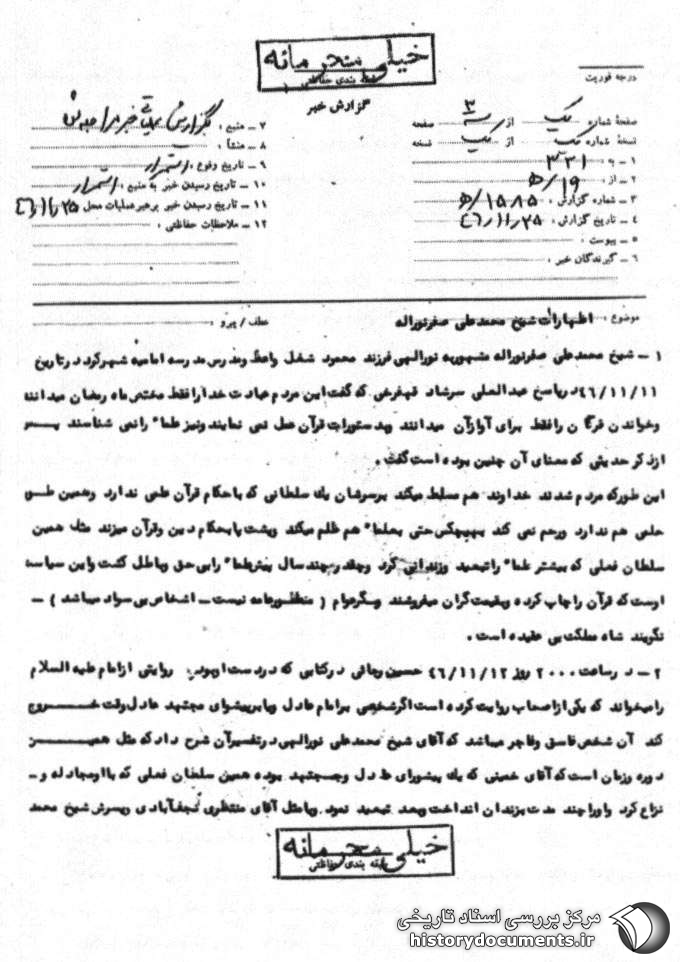 خیلی محرمانه
طبقه بندی حفاظتی
درجه فوریت
گزارش خبر
صفحه شماره یک از ۳ صفحه
نسخه شماره یک از نسخه
۱ ـ به : ۳۳۱
۲ ـ از : ۱۹/ﻫ
۳ ـ شماره گزارش : ۱۵۸۵/ﻫ
۴ ـ تاریخ گزارش : ۴۶/۱۱/۲۵
۵ ـ پیوست :
۶ ـ گیرندگان خبر :
۷ ـ منبع : گزارش
۸ ـ منشأ :
۹ ـ تاریخ وقوع : استمرار
۱۰ ـ تاریخ رسیدن خبر به منبع : استمرار
۱۱ ـ تاریخ رسیدن خبر برهبر عملیات محل ۴۶/۱۱/۲۵
۱۲ ـ ملاحظات حفاظتی :
موضوع : اظهارات شیخ محمدعلی صفرنوراله عطف / پیرو :
۱ ـ شیخ محمدعلی صفرنوراله مشهوربه نورالهی فرزند محمود شغل واعظ ومدرس مدرسه امامیه شهرکرد درتاریخ
۴۶/۱۱/۱۱ درپاسخ عبدالعلی سرشاد قهفرخی که گفت این مردم عبادت خدارافقط مختص ماه رمضان میدانند
وخواندن قرآن رافقط برای آوازآن میدانند وبدستورات قرآن عمل نمی نمایند ونیز علماء رانمی شناسند پس
ازذکر حدیثی که معنای آن چنین بوده است گفت .
این طورکه مردم شدند خداوند هم مسلط میکند برسرشان یک سلطانی که باحکام قرآن علمی ندارد وهمین طور
حلمی هم ندارد ورحم نمی کند بهیچکس حتی بعلماء هم ظلم میکند وپشت باحکام دین وقرآن میزند مثل همین
سلطان فعلی که بیشتر علماء راتبعید وزندانی کرد وچقدر چند سال پیش علماء رابی حق وباطل کشت واین سیاست
اوست که قرآن راچاپ کرده وبقیمت گران میفروشند ومگرعوام ( منظورعامه نیست ـ اشخاص بی سواد میباشد ) ـ
نگویند شاه مملکت بی عقیده است .
۲ ـ در ساعت ۲۰۰۰ روز ۴۶/۱۱/۱۲ حسین وهائی درکتابی که دردست اوبود روایتی ازامام علیه السلام
رامیخواند که یکی ازاصحاب روایت کرده است اگرشخصی برامام عادل ویابرپیشوای مجتهد عادل وقت خروج
کند آن شخص فاسق وفاجر میباشد که آقای شیخ محمدعلی نورالهی درتفسیرآن شرح داد که مثل همین
دوره وزمان است که آقای خمینی که یک پیشوای عادل ومجتهد بوده همین سلطان فعلی که بااومجادله و ـ
نزاع کرد واوراچند مدت بزندان انداخت وبعد تبعید نمود ویامثل آقای منتظری نجف آبادی وپسرش شیخ محمد
خیلی محرمانه
طبقه بندی حفاظتی
مرکز بررسی اسناد تاریخی
historydocuments.ir